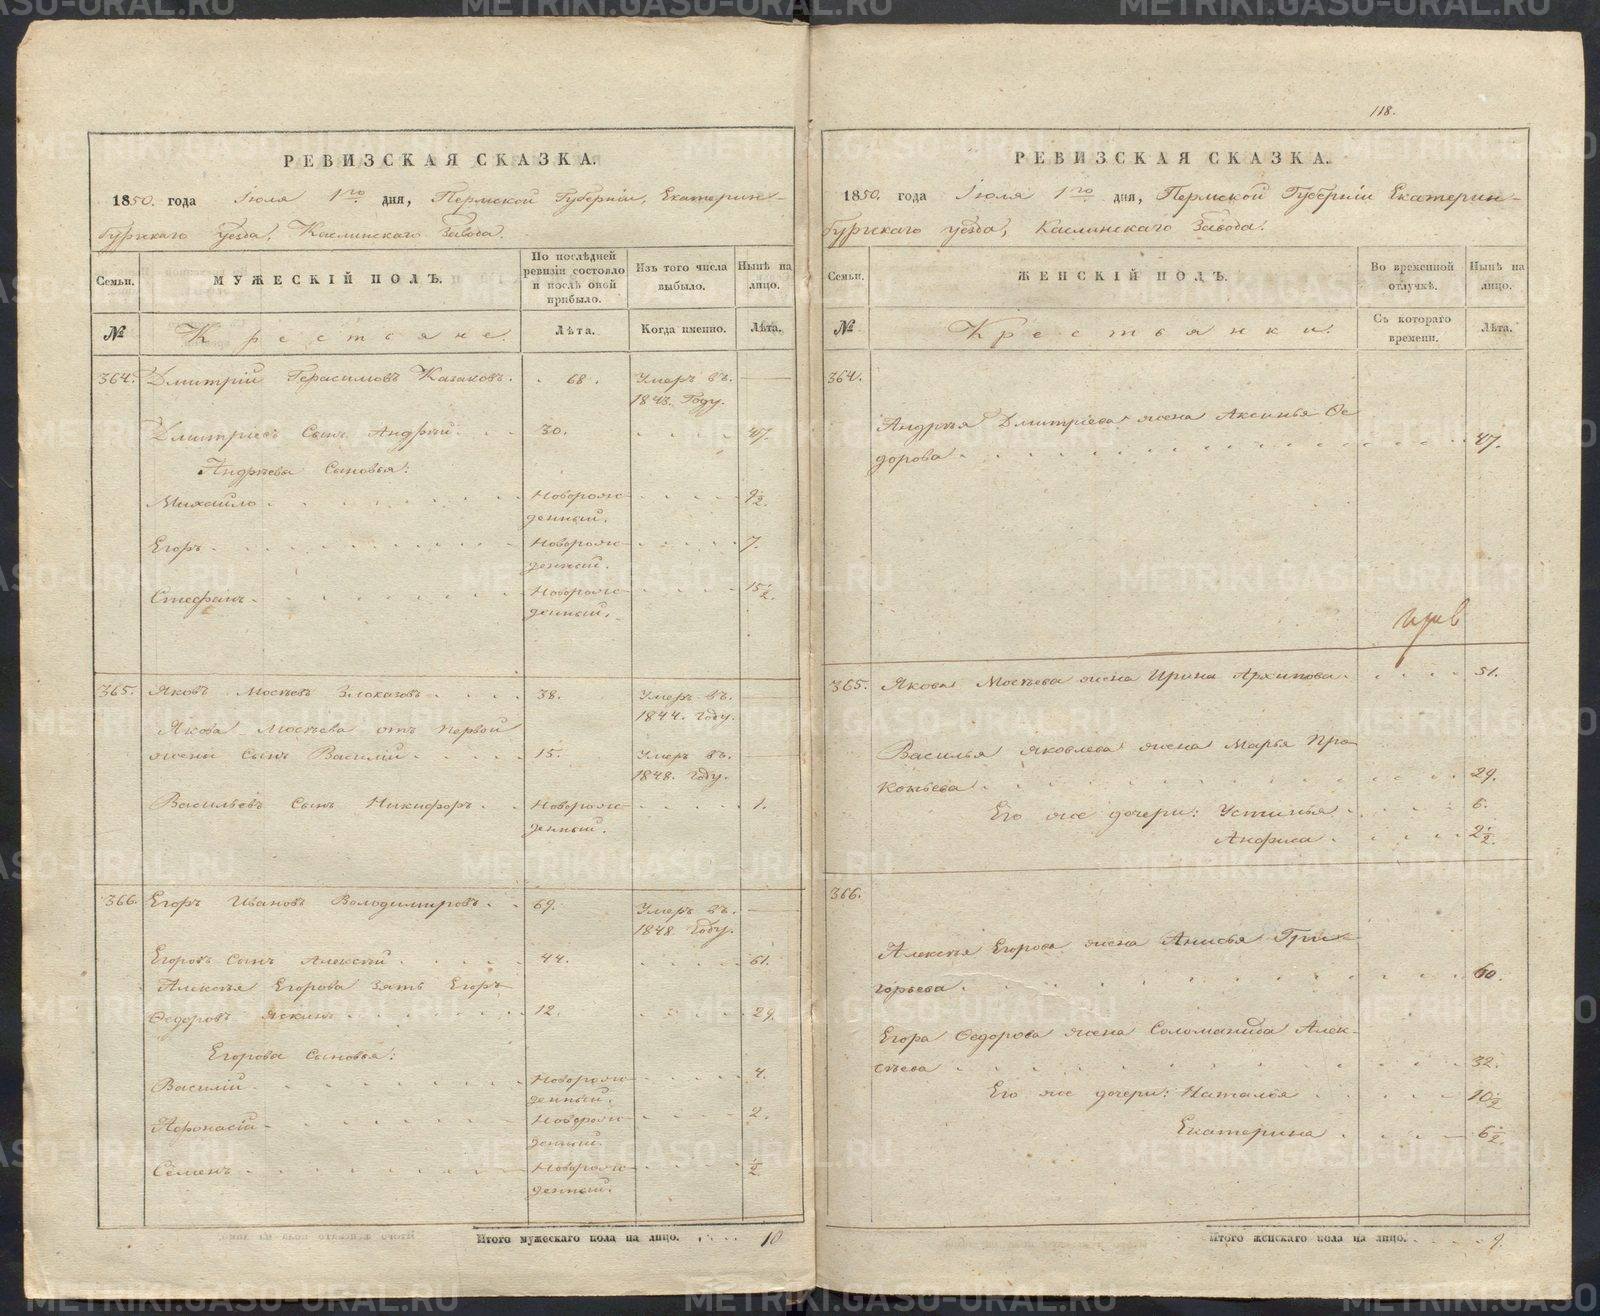 118.
РЕВИЗСКАЯ СКАЗКА.
1850. года Іюля 1го. дня, Пермской Губерніи, Екатерин-
бургскаго Уезда, Каслинскаго Завода.
Семьи.
МУЖЕСКІЙ ПОЛЪ.
По послѣдней
ревизіи состояло
и послѣ оной
прибыло.
Изъ того числа
выбыло.
Нынѣ на
лицо.
№
Крестьяне.
Лѣта.
Когда именно.
Лѣта.
364. Дмитрій Герасимовъ Казаковъ. 68. Умеръ въ.
1843. Году.
Дмитріевъ Сынъ Андрѣй. 30. 47.
Андрѣева Сыновья:
Михайло Новорож-
денный. 9½.
Егоръ Новорож-
денный. 7.
Стефанъ Новорож-
денный. 15½.
365. Яковъ Мосѣевъ Злоказовъ 38. Умеръ въ.
1844. Году.
Якова Мосѣева отъ первой
жены сынъ Василій 15. Умеръ въ.
1848. Году.
Васильевъ Сынъ Никифоръ Новорож-
денный. 1.
366. Егоръ Ивановъ Володимировъ. 69. Умеръ въ.
1848. Году.
Егоровъ Сынъ Алексѣй 44. 61.
Алексѣя Егорова зять Егоръ
Ѳедоровъ 12. 29.
Егорова Сыновья:
Василій Новорож-
денный. 4.
Афонасій Новорож-
денный. 2.
Семенъ Новорож-
денный. ½
Итого мужескаго пола на лицо. 10
РЕВИЗСКАЯ СКАЗКА.
1850. года Іюля 1го. дня, Пермской Губерніи Екатерин-
бургскаго уезда, Каслинскаго Завода.
Семьи.
ЖЕНСКІЙ ПОЛЪ.
Во временной
отлучкѣ.
Нынѣ на
лицо.
№
Крестьянки.
Съ котораго
времени.
Лѣта.
364.
Андрѣя Дмитріева жена Аксинья Ѳе
дорова 47.
365. Якова Мосѣева жена Ирина Архипова. 51.
Василья Яковлева жена Марья Про
копьева 29.
Его же дочери: Устинья 6.
Анфиса 2½.
366.
Алексѣя Егорова жена Анисья Гри-
горьева. 60.
Егора Ѳедорова жена Соломанида Алек-
сѣева 32.
Его же дочери: Наталья 10½
Екатерина 6½.
Итого женскаго пола на лицо. 9.
METRIKI.GASO-URAL.RU